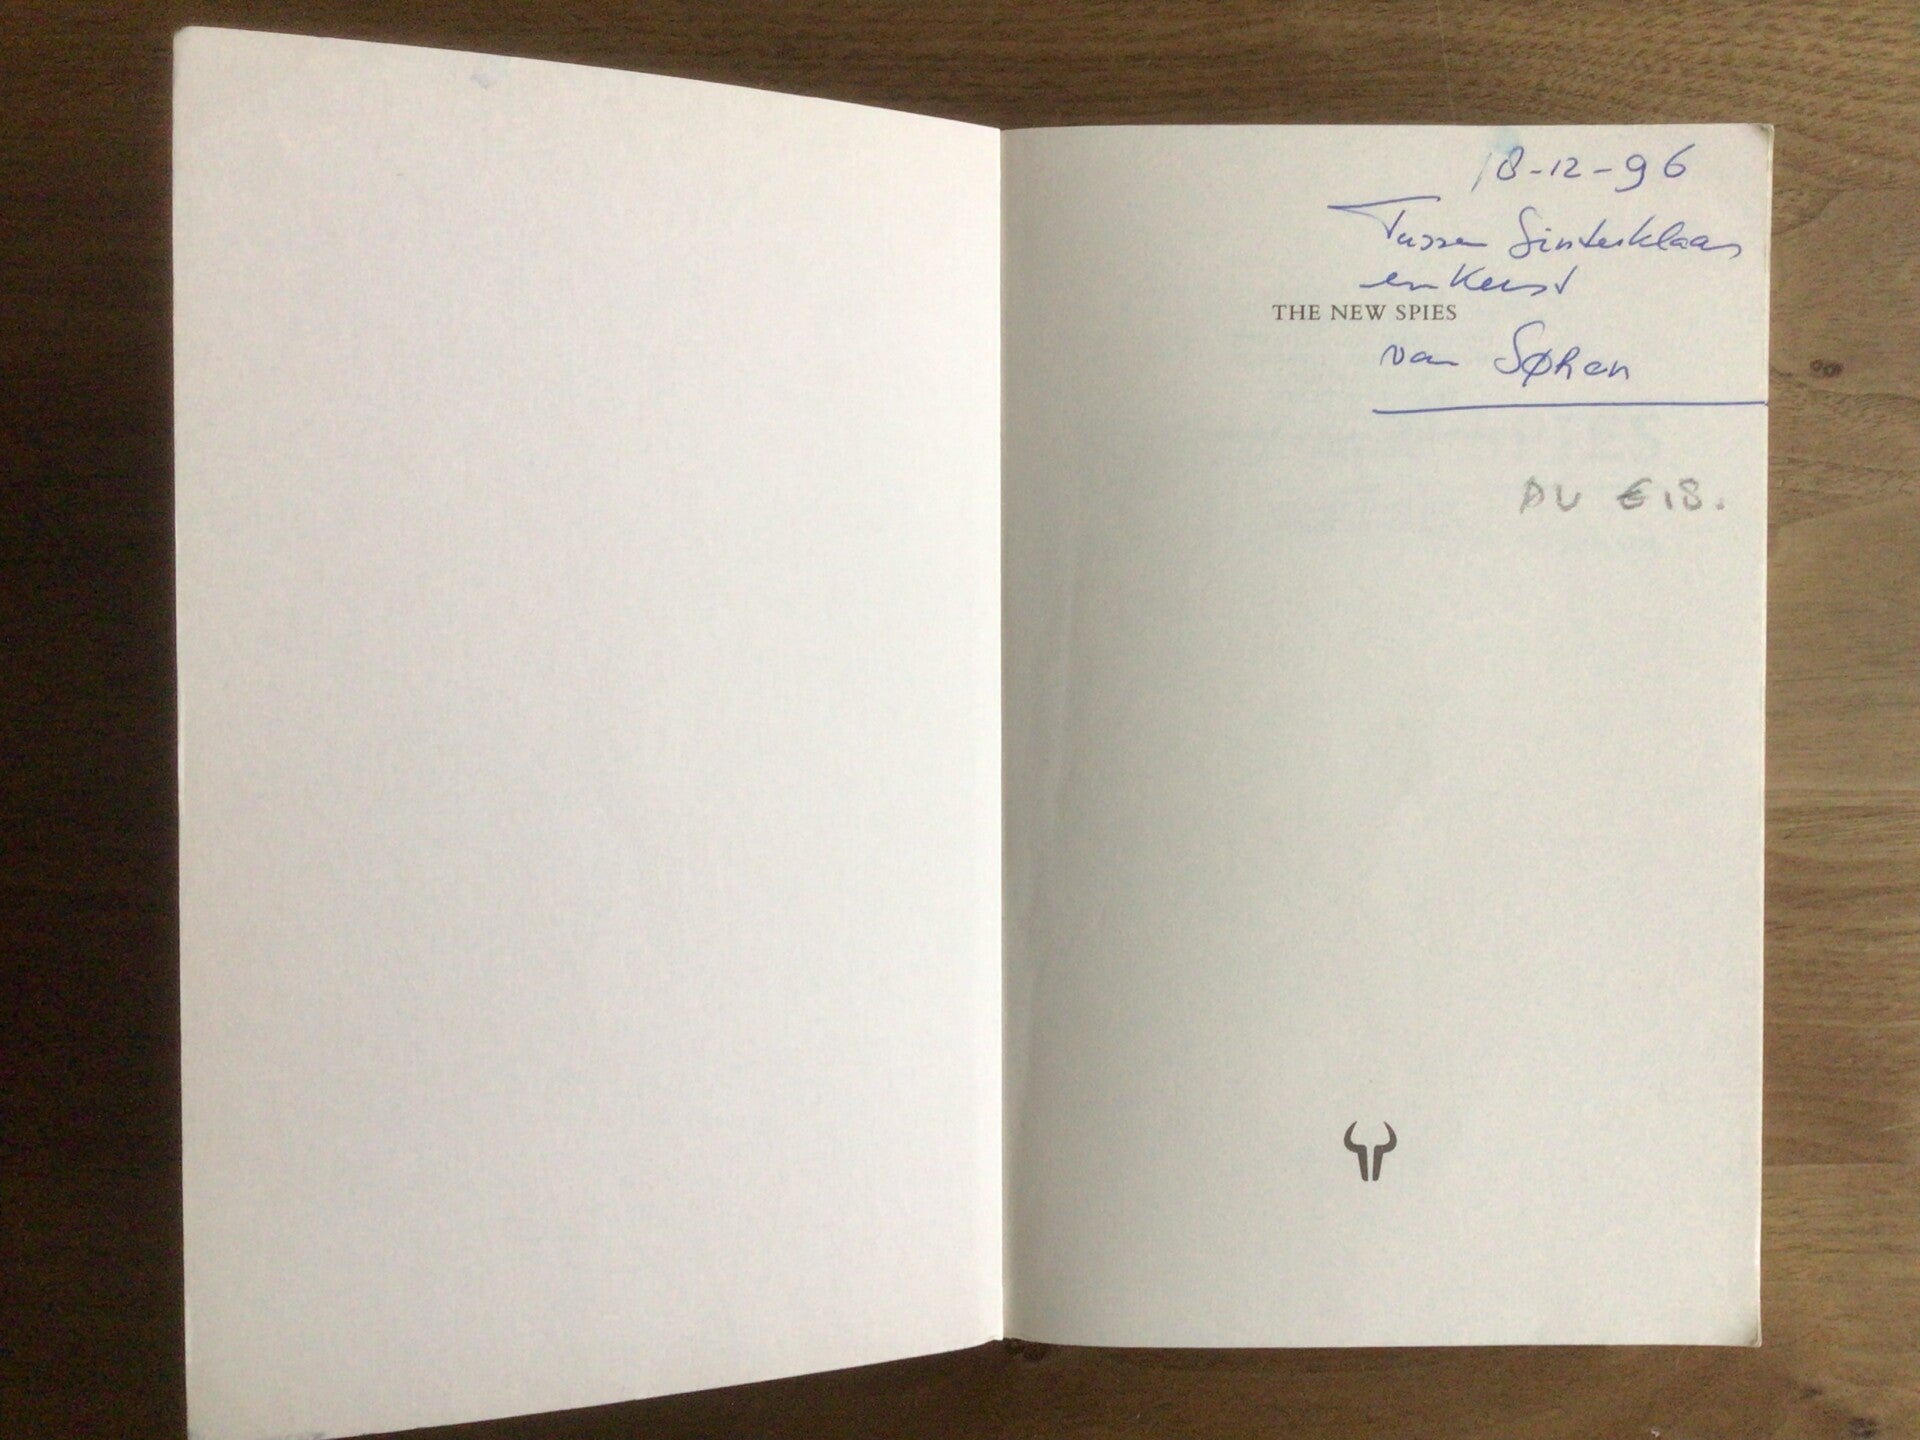 18-12-96
Tussen Sinterklaas
en Kerst
THE NEW SPIES
van Søren
AU €18.